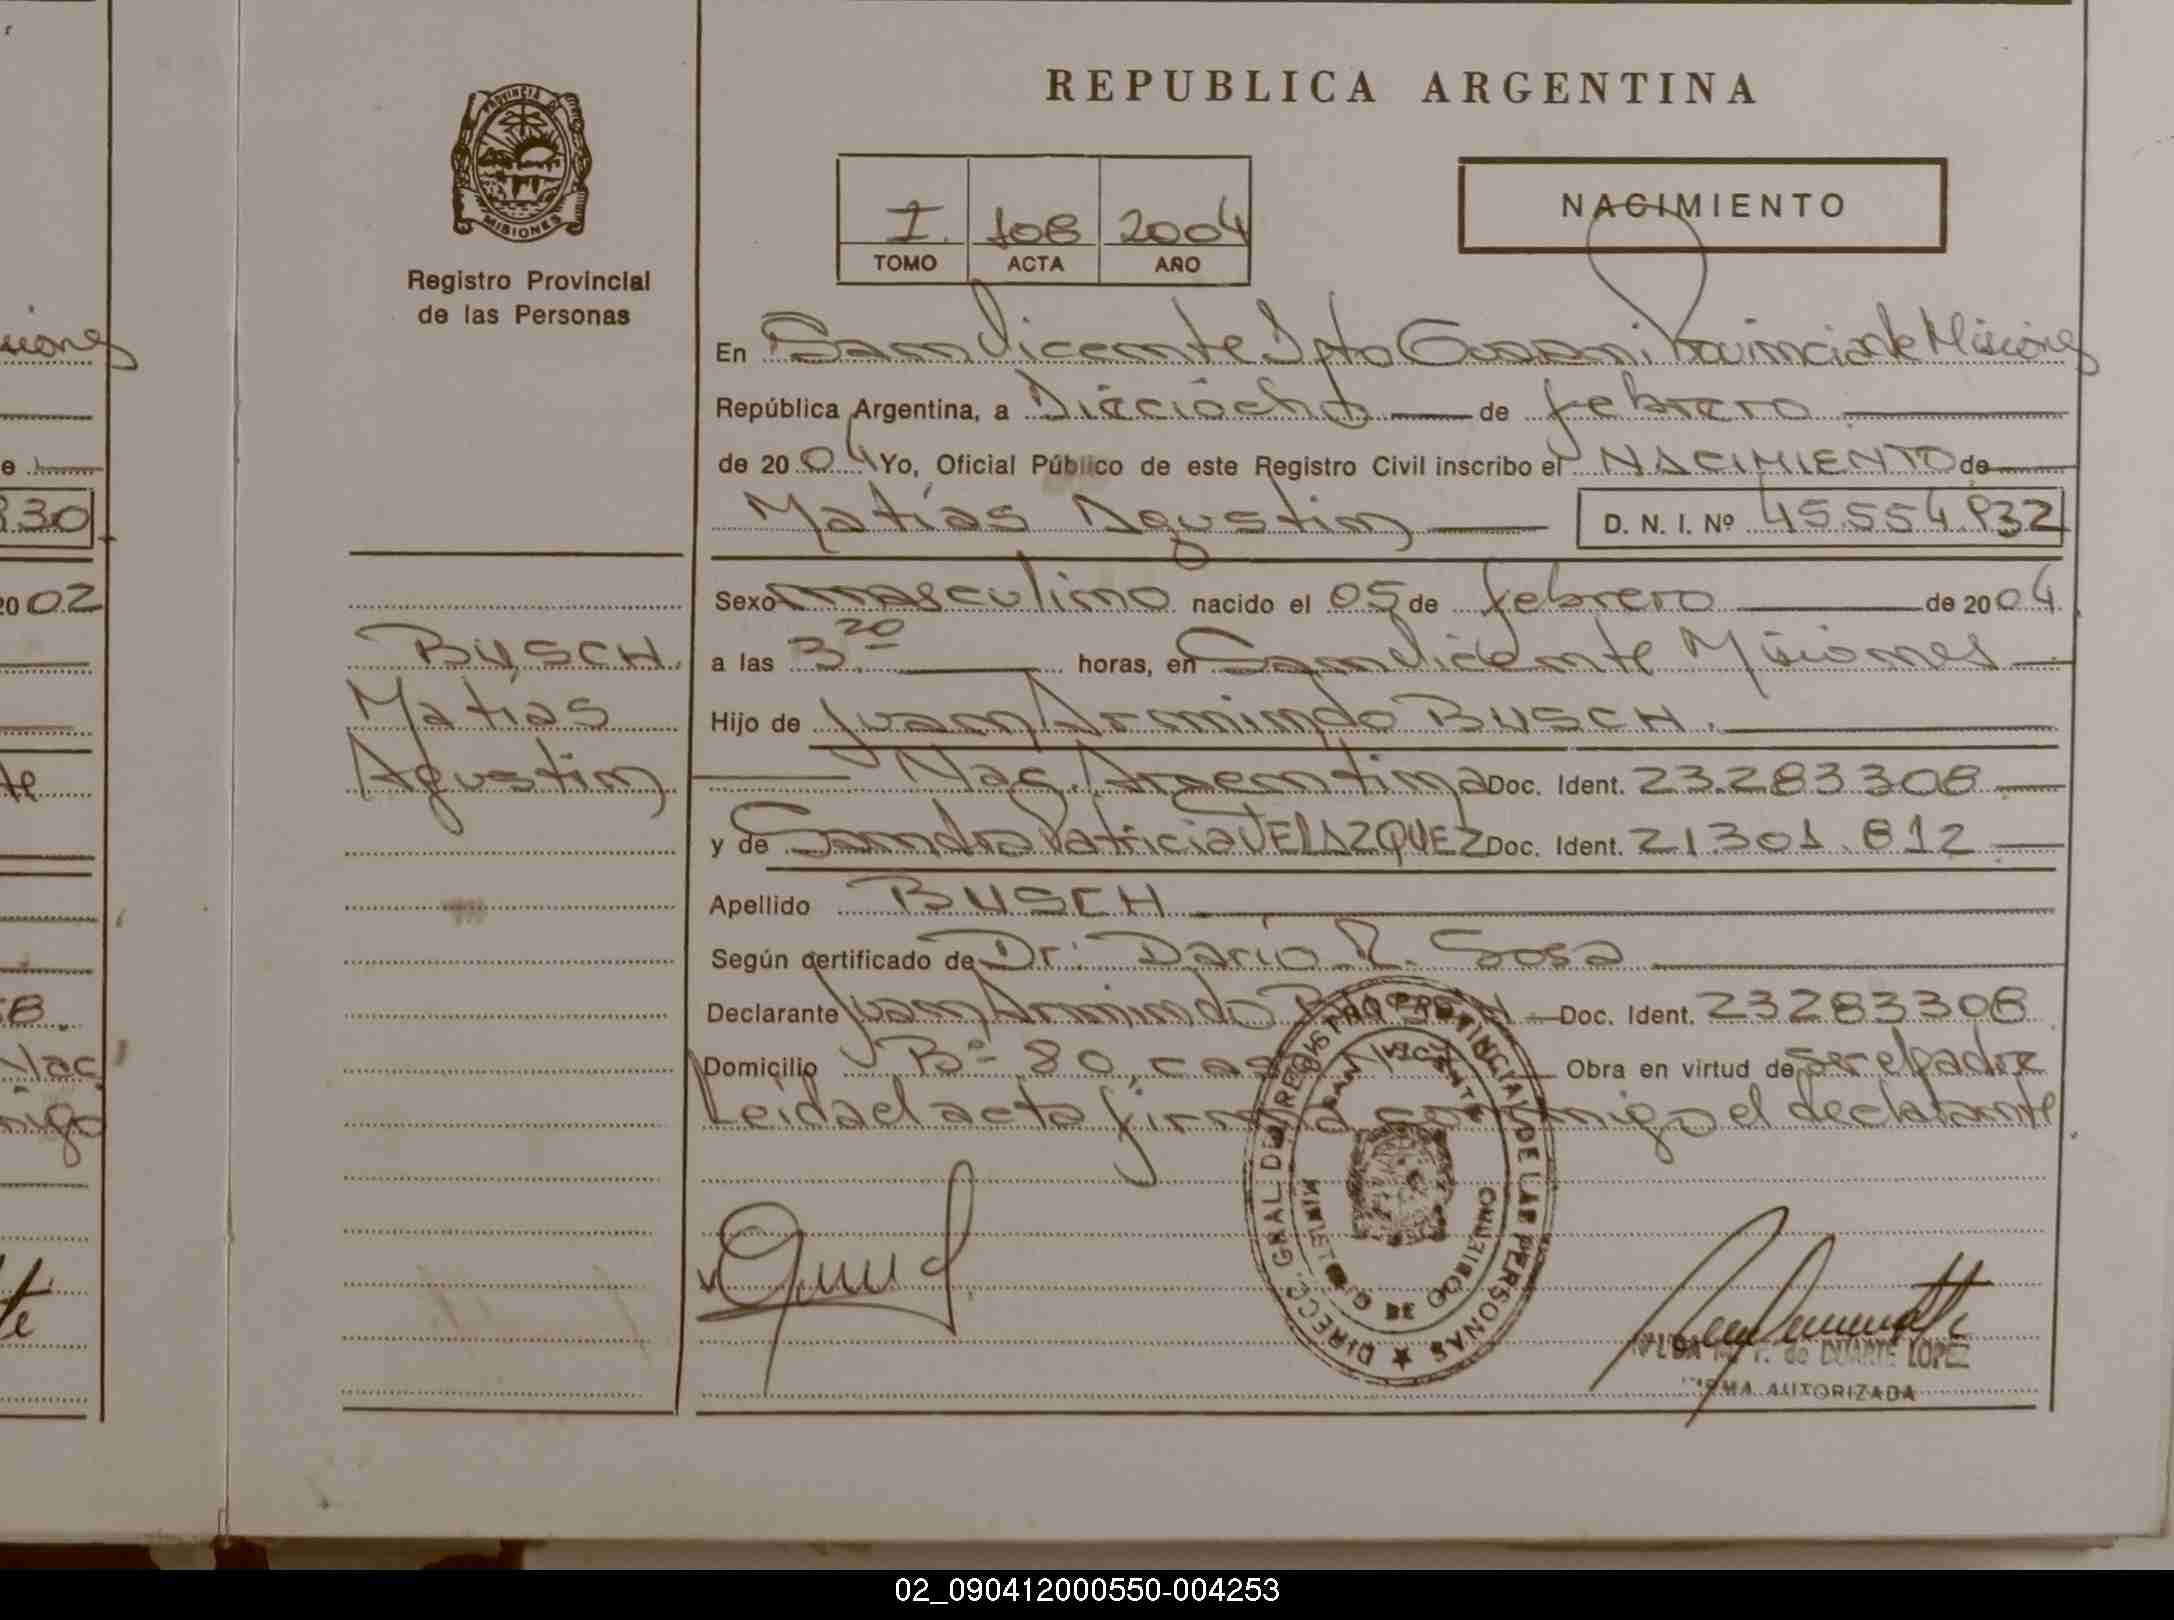 REPUBLICA ARGENTINA
PROVINCIA DE
MISIONES
Registro Provincial
de las Personas
I. 108 2004
TOMO ACTA AÑO
NACIMIENTO
En San Vicente Dpto Guarani Provincia de Misiones
República Argentina, a Dieciocho de febrero
de 2004 Yo, Oficial Público de este Registro Civil inscribo el NACIMIENTO de
Matías Agustin D. N. I. Nº 45.554.832
Sexo masculino nacido el 05 de febrero de 2004
a las 3 20 horas, en San Vicente Misiones
Hijo de Juan Armindo BUSCH.
Nac. Argentina Doc. Ident. 23.283308
y de Sandra Patricia VELAZQUEZ Doc. Ident. 21.301.812
Apellido BUSCH
Según certificado de Dr. Dario R. Sosa
Declarante Juan Armindo Doc. Ident. 23283308
Domicilio Bº 80 casas Obra en virtud de ser el padre
Leida el acta firma conmigo el declarante
BUSCH.
Matías
Agustin
DIRECC. GRAL DE REGISTRO PROVINCIAL DE LAS PERSONAS
SAN VICENTE
MINISTERIO DE GOBIERNO
DUARTE LOPEZ
FIRMA AUTORIZADA
uiones
e
830
2002
te
Nac
nigo
02_090412000550-004253